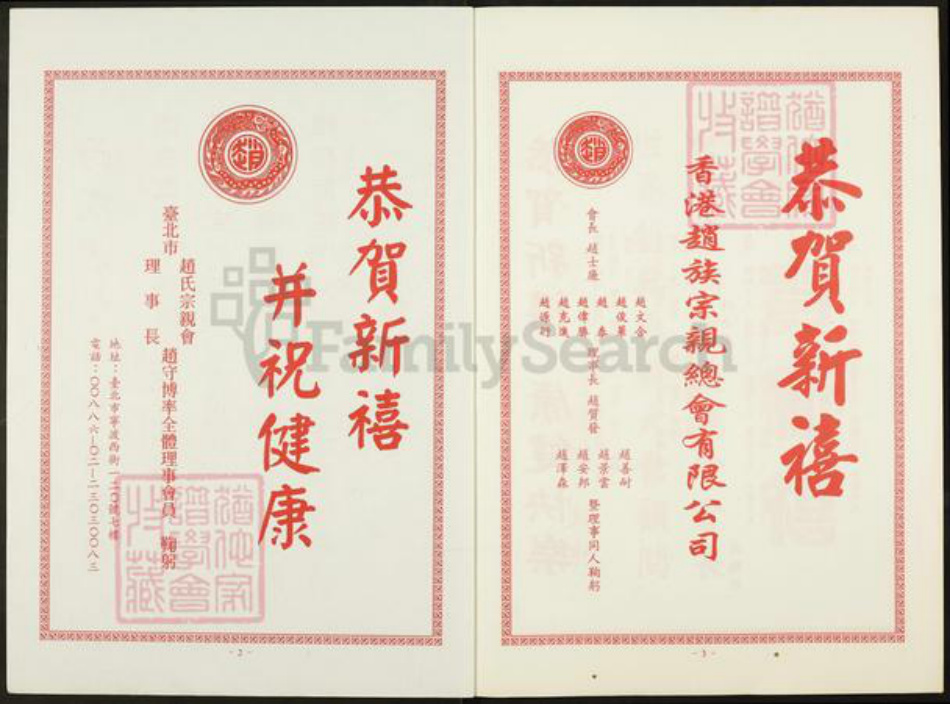 恭賀新禧
香港趙族宗親總會有限公司
會長 趙士廉
趙文合
趙俊
趙春
趙偉勝
趙克
趙
理事長 趙質發
趙善耐
趙景雲
趙安邦
趙澤森
暨理事同人鞠躬
趙
- 3 -
恭賀新禧
并祝健康
趙
臺北市趙氏宗親會
理事長 趙守博率全體理事會員 鞠躬
地址：臺北市寧波西街一二○號七樓
電話：○○八八六－○二－二三○三○○八三
- 2 -
猶他家譜學會收藏
猶他家譜學會收藏
FamilySearch